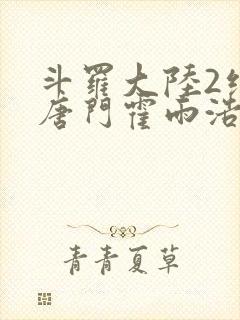 斗羅大陸2絕
唐門霍雨浩
青青夏草